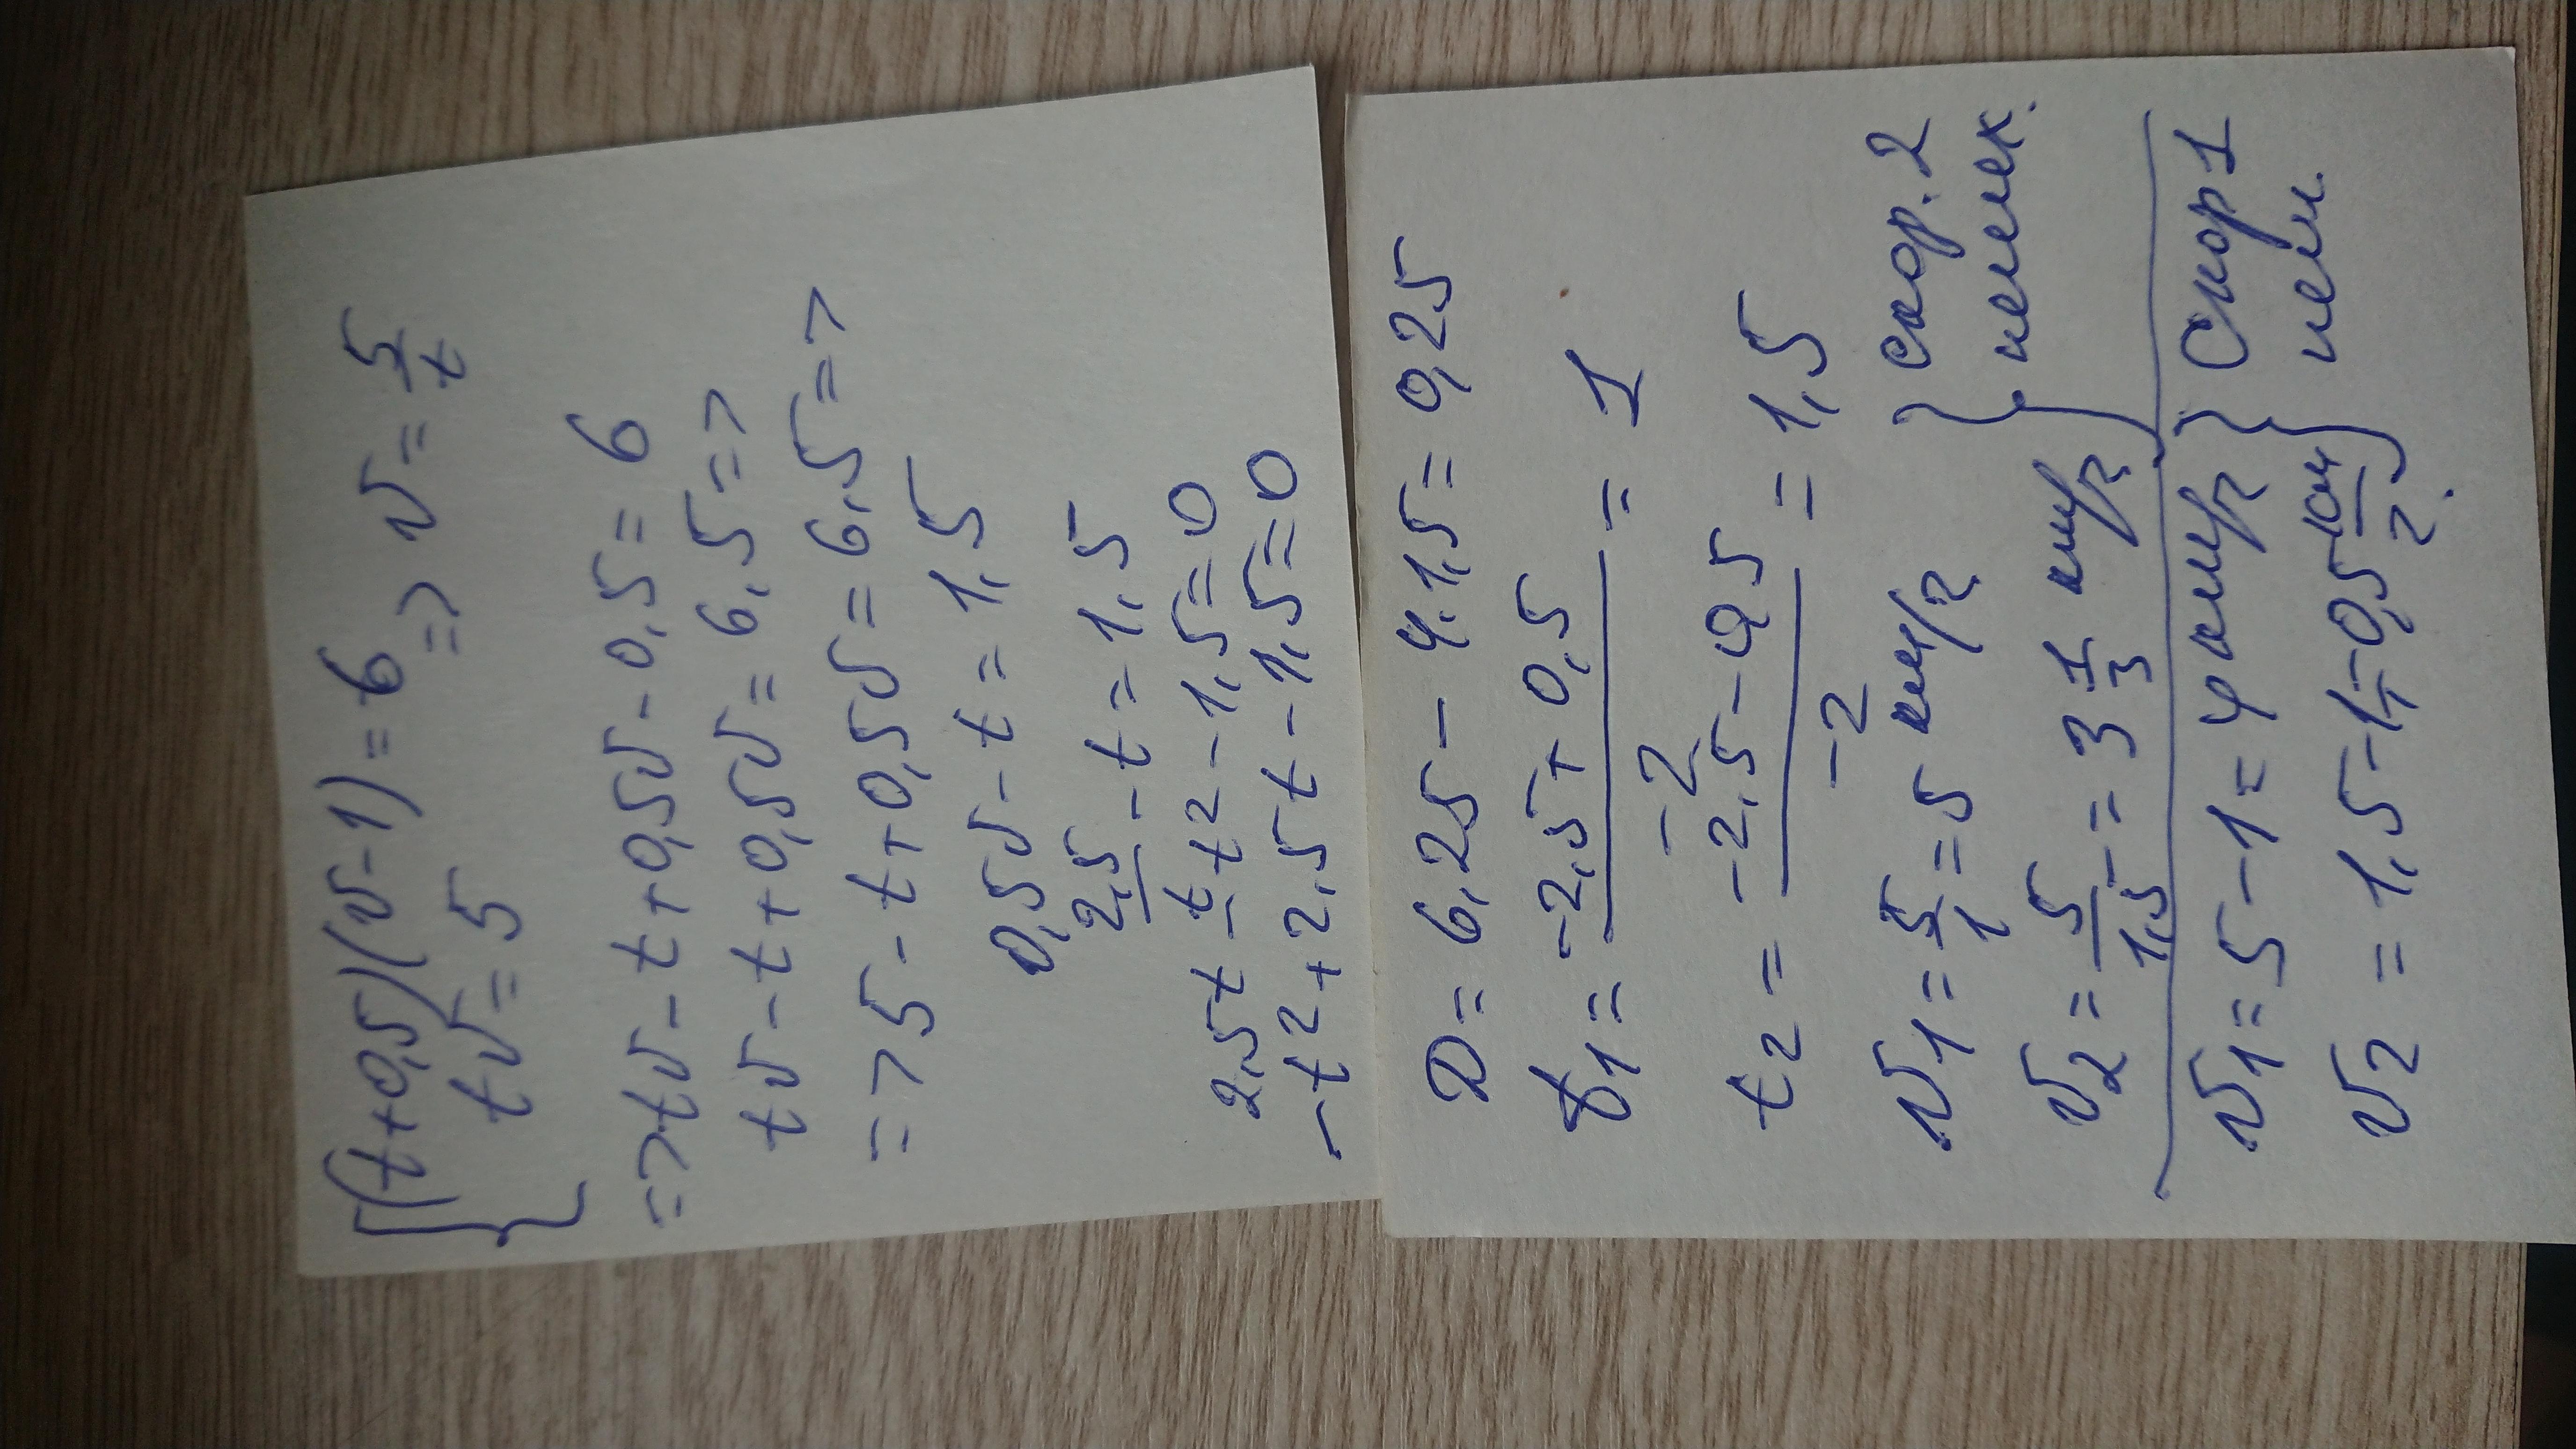 {(t+0,5)(v-1)=6
tv=5 => v=5/t
=>tv-t+0,5v-0,5=6
tv-t+0,5v=6,5=>
=>5-t+0,5v=6,5=>
0,5v-t=1,5
2,5/t-t=1,5
2,5t-t²-1,5=0
-t²+2,5t-1,5=0
D=6,25-4·1,5=0,25
t₁=(-2,5+0,5)/-2=1
t₂=(-2,5-0,5)/-2=1,5
v₁=5/1=5 км/г } скор. 2
v₂=5/1,5=3 1/3 км/г } пешех.
v₁=5-1=4 км/г } Скор 1
v₂=1,5-1=0,5 км/г. } пеш.